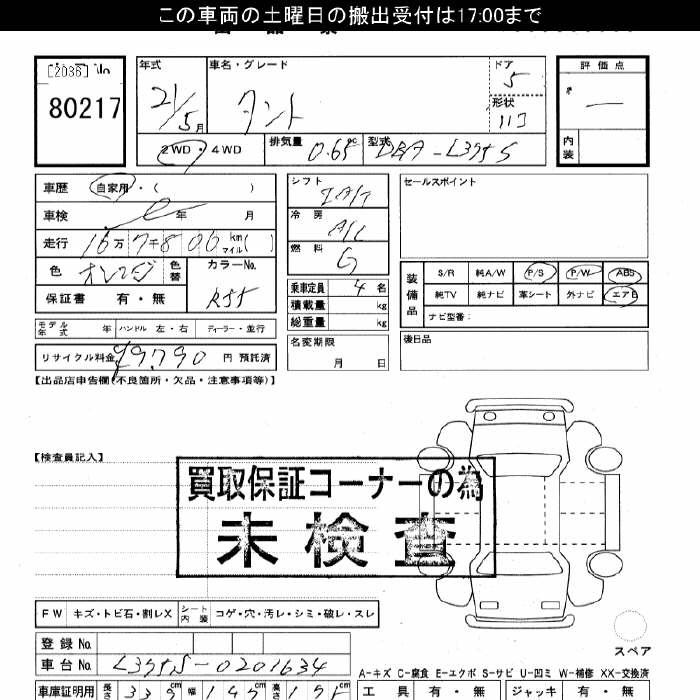 この車両の土曜日の搬出受付は17:00まで
[2036] No
80217
年式 21/5月
車名・グレード タント
ドア 5
形状
評価点 —
内装
2WD・4WD
排気量 0.65 cc
型式 DBA-L375S
車歴 自家用・( )
車検 年 月
走行 16万7千800 km マイル( )
色 オレンジ 色替 カラーNo. R55
保証書 有・無
モデル年式 年 ハンドル 左・右 ディーラー・並行
リサイクル料金 ¥9,790 円 預託済
シフト IAT
冷房 A/C
燃料 G
乗車定員 4 名
積載量 kg
総重量 kg
名変期限 月 日
セールスポイント
装備品
S/R 純A/W P/S P/W ABS
純TV 純ナビ 革シート 外ナビ エアB
ナビ型番:
後日品
【出品店申告欄(不良箇所・欠品・注意事項等)】
【検査員記入】
買取保証コーナーの為
未検査
FW キズ・トビ石・割レX シート内装 コゲ・穴・汚レ・シミ・破レ・スレ
スペア
登録No.
車台No. L375S-0201634
A-キズ C-腐食 E-エクボ S-サビ U-凹ミ W-補修 XX-交換済
車庫証明用 長さ 339cm 幅 147cm 高さ 175cm
工具 有・無 ジャッキ 有・無